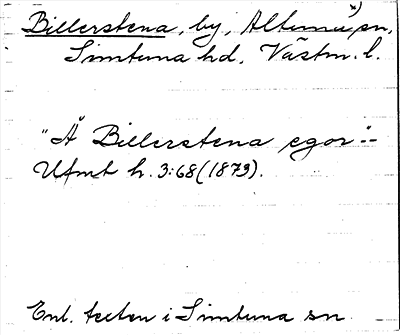 Billerstena, by, Altuna x) sn,
Simtuna hd, Västm. l.
"Å Billerstena egor":-
Ufmt h. 3:68 (1873).
Enl. texten i Simtuna sn